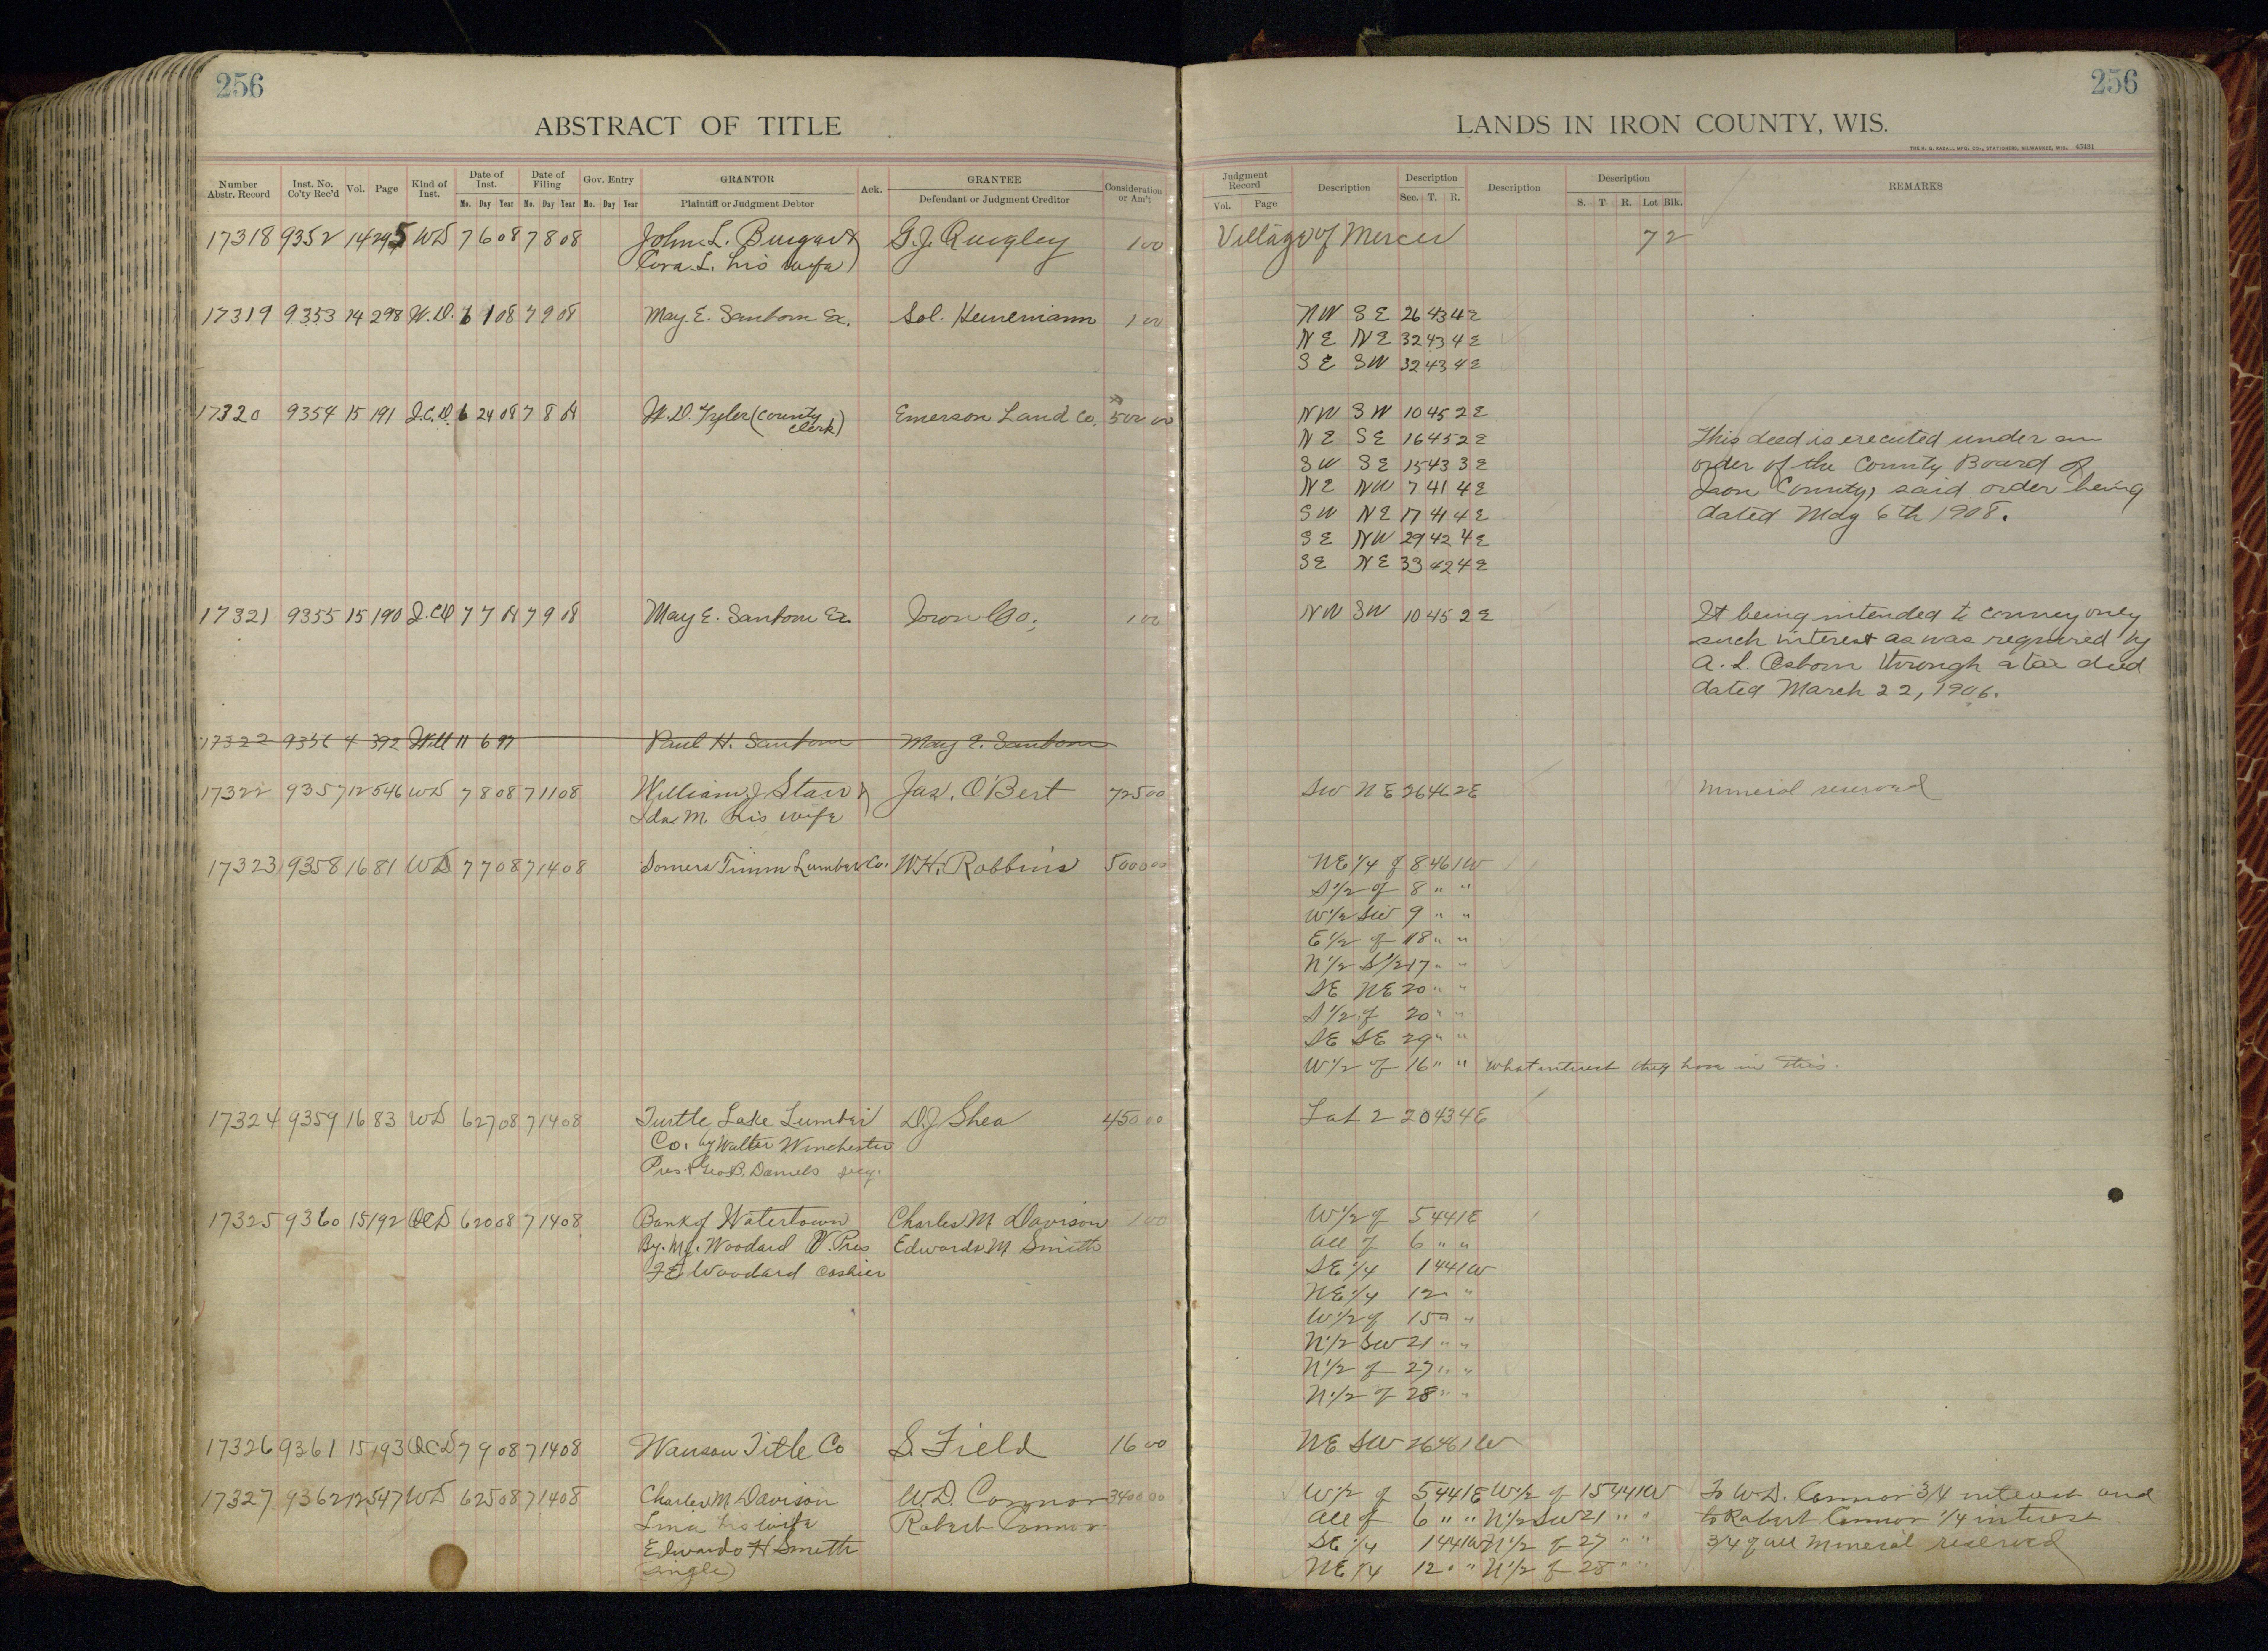 256
ABSTRACT OF TITLE
Number Abstr. Record | Inst. No. Co'ty Rec'd | Vol. | Page | Kind of Inst. | Date of Inst. Mo. Day Year | Date of Filing Mo. Day Year | Gov. Entry Mo. Day Year | GRANTOR Plaintiff or Judgment Debtor | Ack. | GRANTEE Defendant or Judgment Creditor | Consideration or Am't
17318 9352 14 295 WD 7 6 08 7 8 08 John L. Burgar & G.J. Quigley 1 00
Cora L. his wife)
17319 9353 14 298 W.D. 6 1 08 7 9 08 May E. Sanborn Ex. Sol. Heinemann 1 00
17320 9354 15 191 Q.C.D. 6 24 08 7 8 08 W.D. Tyler (County Emerson Land Co. 500 00
Clerk)
17321 9355 15 190 Q.C.D 7 7 08 7 9 08 May E. Sanborn Ex. Iron Co. 1 00
17322 9356 4 392 Will 11 6 97 Paul H. Sanborn May E. Sanborn
17322 9357 12 546 WD 7 8 08 7 11 08 William J Starr & Jas. O'Bert 725 00
Ida M. his wife
17323 9358 16 81 WD 7 7 08 7 14 08 Somers Timm Lumber Co. W.H. Robbins 5000 00
17324 9359 16 83 WD 6 27 08 7 14 08 Turtle Lake Lumber D.J Shea 450 00
Co. by Walter Winchester
Pres. & Geo B. Daniels Secy.
17325 9360 15 192 QCD 6 20 08 7 14 08 Bank of Watertown Charles M Davison 1 00
By. M.J. Woodard V. Pres Edwards M Smith
F E Woodard Cashier
17326 9361 15 193 QCD 7 9 08 7 14 08 Wausau Title Co S. Field 16 00
17327 9362 12 547 WD 6 25 08 7 14 08 Charles M. Davison W.D. Connor 3400 00
Lina his wife Robert Connor
Edwards H Smith
(single)
256
LANDS IN IRON COUNTY, WIS.
Judgment Record Vol. Page | Description | Description Sec. T. R. | Description | Description S. T. R. Lot Blk. | REMARKS
Village of Mercer 7 2
NW SE 26 43 4 E
NE NE 32 43 4 E
SE SW 32 43 4 E
NW SW 10 45 2 E
NE SE 16 45 2 E This deed is executed under an
SW SE 15 43 3 E order of the County Board of
NE NW 7 41 4 E Iron County, said order being
SW NE 17 41 4 E dated May 6th 1908.
SE NW 29 42 4 E
SE NE 33 42 4 E
NW SW 10 45 2 E It being intended to convey only
such interest as was required by
A. L. Osborn through a tax deed
dated March 22, 1906.
SW NE 26 46 2 E Mineral reserved
NE 1/4 of 8 46 1 W
S 1/2 of 8 " "
W 1/2 SW 9 " "
E 1/2 of 18 " "
N 1/2 S 1/2 17 " "
SE NE 20 " "
S 1/2 of 20 " "
SE SE 29 " "
W 1/2 of 16 " " What interest they have in this.
Lot 2 20 43 4 E
W 1/2 of 5 44 1 E
All of 6 " "
SE 1/4 1 44 1 W
NE 1/4 12 " "
W 1/2 of 15 " "
N 1/2 SW 21 " "
N 1/2 of 27 " "
N 1/2 of 28 " "
NE SW 26 46 1 W
W 1/2 of 5 44 1 E W 1/2 of 15 44 1 W To W.D. Connor 3/4 interest and
All of 6 " " N 1/2 SW 21 " " to Robert Connor 1/4 interest
SE 1/4 1 44 1 W N 1/2 of 27 " " 3/4 of all mineral reserved
NE 1/4 12 " " N 1/2 of 28 " "